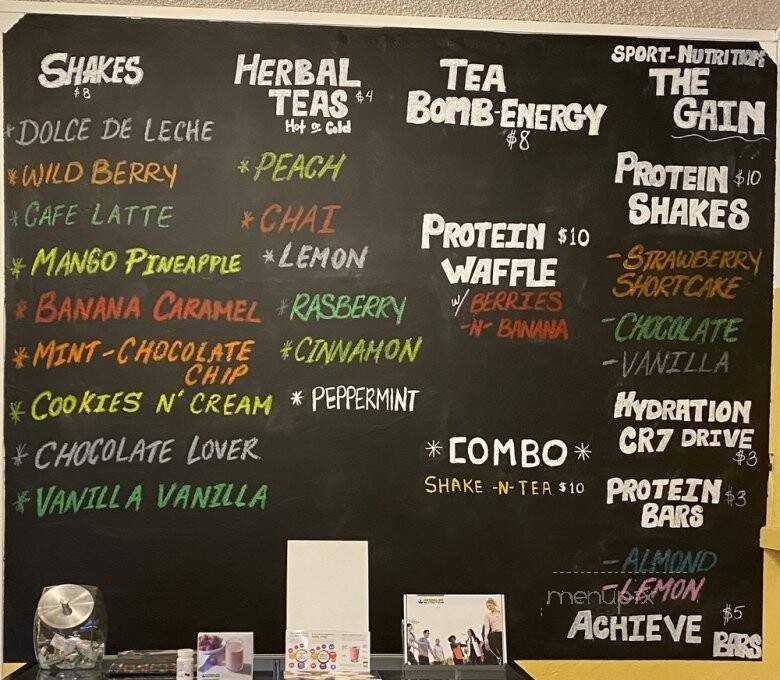 SHAKES
$8
*DOLCE DE LECHE
*WILD BERRY
*CAFE LATTE
*MANGO PINEAPPLE
*BANANA CARAMEL
*MINT-CHOCOLATE
CHIP
*COOKIES N' CREAM
*CHOCOLATE LOVER
*VANILLA VANILLA
HERBAL
TEAS $4
Hot or Cold
*PEACH
*CHAI
*LEMON
*RASBERRY
*CINNAMON
*PEPPERMINT
TEA
BOMB-ENERGY
$8
PROTEIN $10
WAFFLE
w/ BERRIES
-N- BANANA
*COMBO*
SHAKE -N-TEA $10
SPORT-NUTRITION
THE
GAIN
PROTEIN $10
SHAKES
-STRAWBERRY
SHORTCAKE
-CHOCOLATE
-VANILLA
HYDRATION
CR7 DRIVE
$3
PROTEIN $3
BARS
-ALMOND
-LEMON
ACHIEVE $5
BARS
menupix